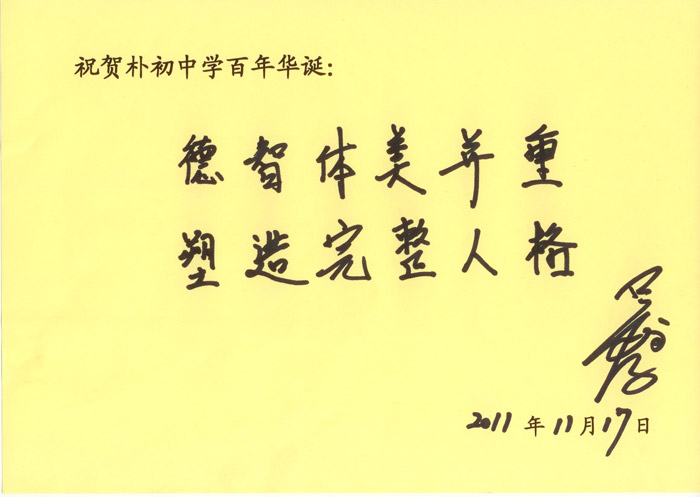 祝贺朴初中学百年华诞：
德智体美并重
塑造完整人格
2011年11月17日